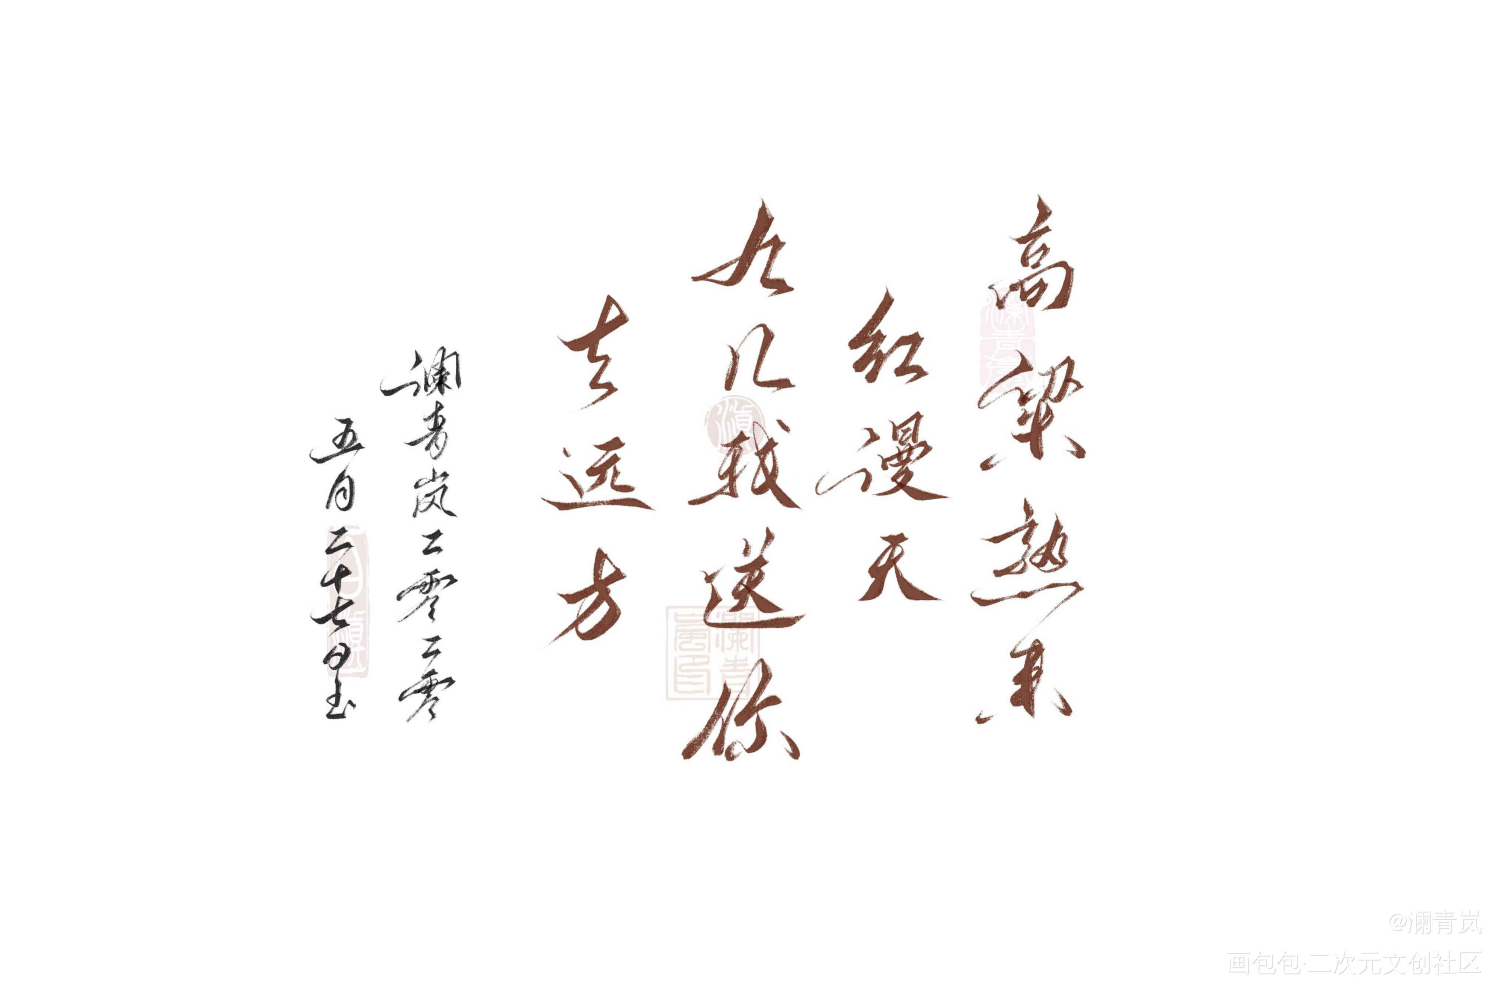 高粱熟来
红漫天
九儿我送你
去远方
澜青岚二零二零
五月二十七日书
@澜青岚
画包包·二次元文创社区